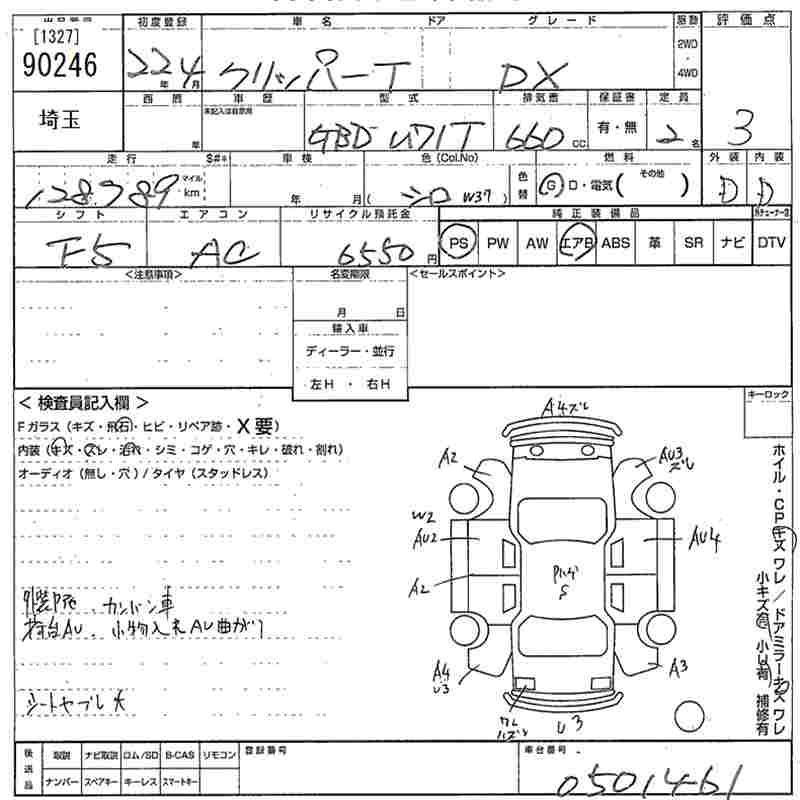 出品番号 初度登録 車名 ドア グレード 駆動 評価点
[1327]
90246 22年 4月 クリッパーT DX 2WD ・ 4WD 3
埼玉 西暦 年 車歴 未記入は自家用 型式 GBD U71T 排気量 660 cc 保証書 有・無 定員 2名
走行 $#* 車検 色 (Col.No) 燃料 外装 内装
128789 マイル km 年 月 ( シロ W37 ) 色替 G D・電気( その他 ) D D
シフト エアコン リサイクル預託金 純正装備品
F5 AC 6550円 PS PW AW エアB ABS 革 SR ナビ DTV
<注意事項> 名変期限 <セールスポイント>
月 日
輸入車
ディーラー・並行
左H ・ 右H
< 検査員記入欄 > キーロック
Fガラス (キズ・飛石・ヒビ・リペア跡・X要)
内装 (キズ・スレ・汚れ・シミ・コゲ・穴・キレ・破れ・割れ)
オーディオ (無し・穴) / タイヤ (スタッドレス)
A4ズレ
A2 AU3 ズレ
W2
AU2 AU4
A2
S
カンバン車
荷台AU、小物入れAU曲がり
A4 U3 A3
シートヤブレ大
U3
ホイル・CPキズワレ / ドアミラーキズワレ
小キズ有 小U有 補修有
後送品 取説 ナビ取説 ロム/SD B-CAS リモコン 登録番号 車台番号
ナンバー スペアキー キーレス スマートキー 0501461